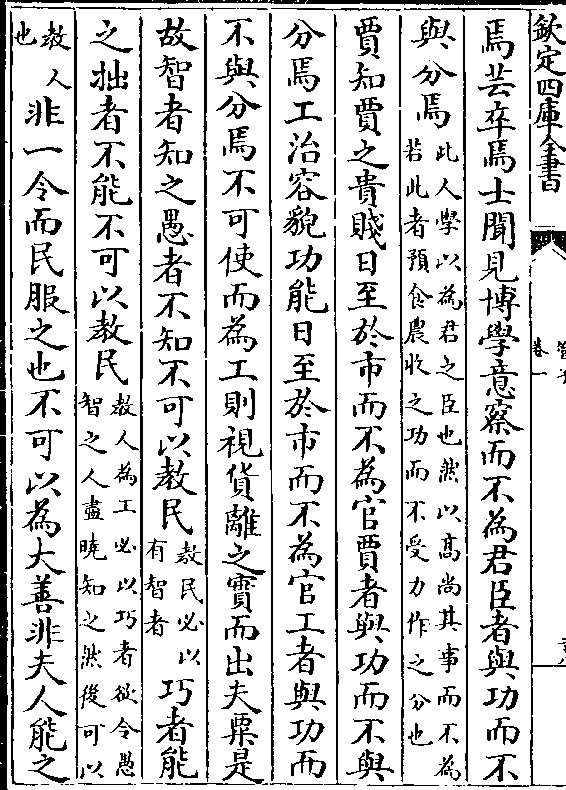 欽定四庫全書
管子
卷一
焉芸卒焉士聞見博學意察而不為君臣者與功而不
與分焉此人學以為君之臣也然以高尚其事而不為若此者預食農收之功而不受力作之分也
賈知賈之貴賤日至於市而不為官賈者與功而不與
分焉工治容貌功能日至於市而不為官工者與功而
不與分焉不可使而為工則視貨離之實而出夫粟是
故智者知之愚者不知不可以教民教民必以有智者巧者能
之拙者不能不可以教民教人為工必以巧者欲令愚智之人盡曉知之然後可以
教人也非一令而民服之也不可以為大善非夫人能之